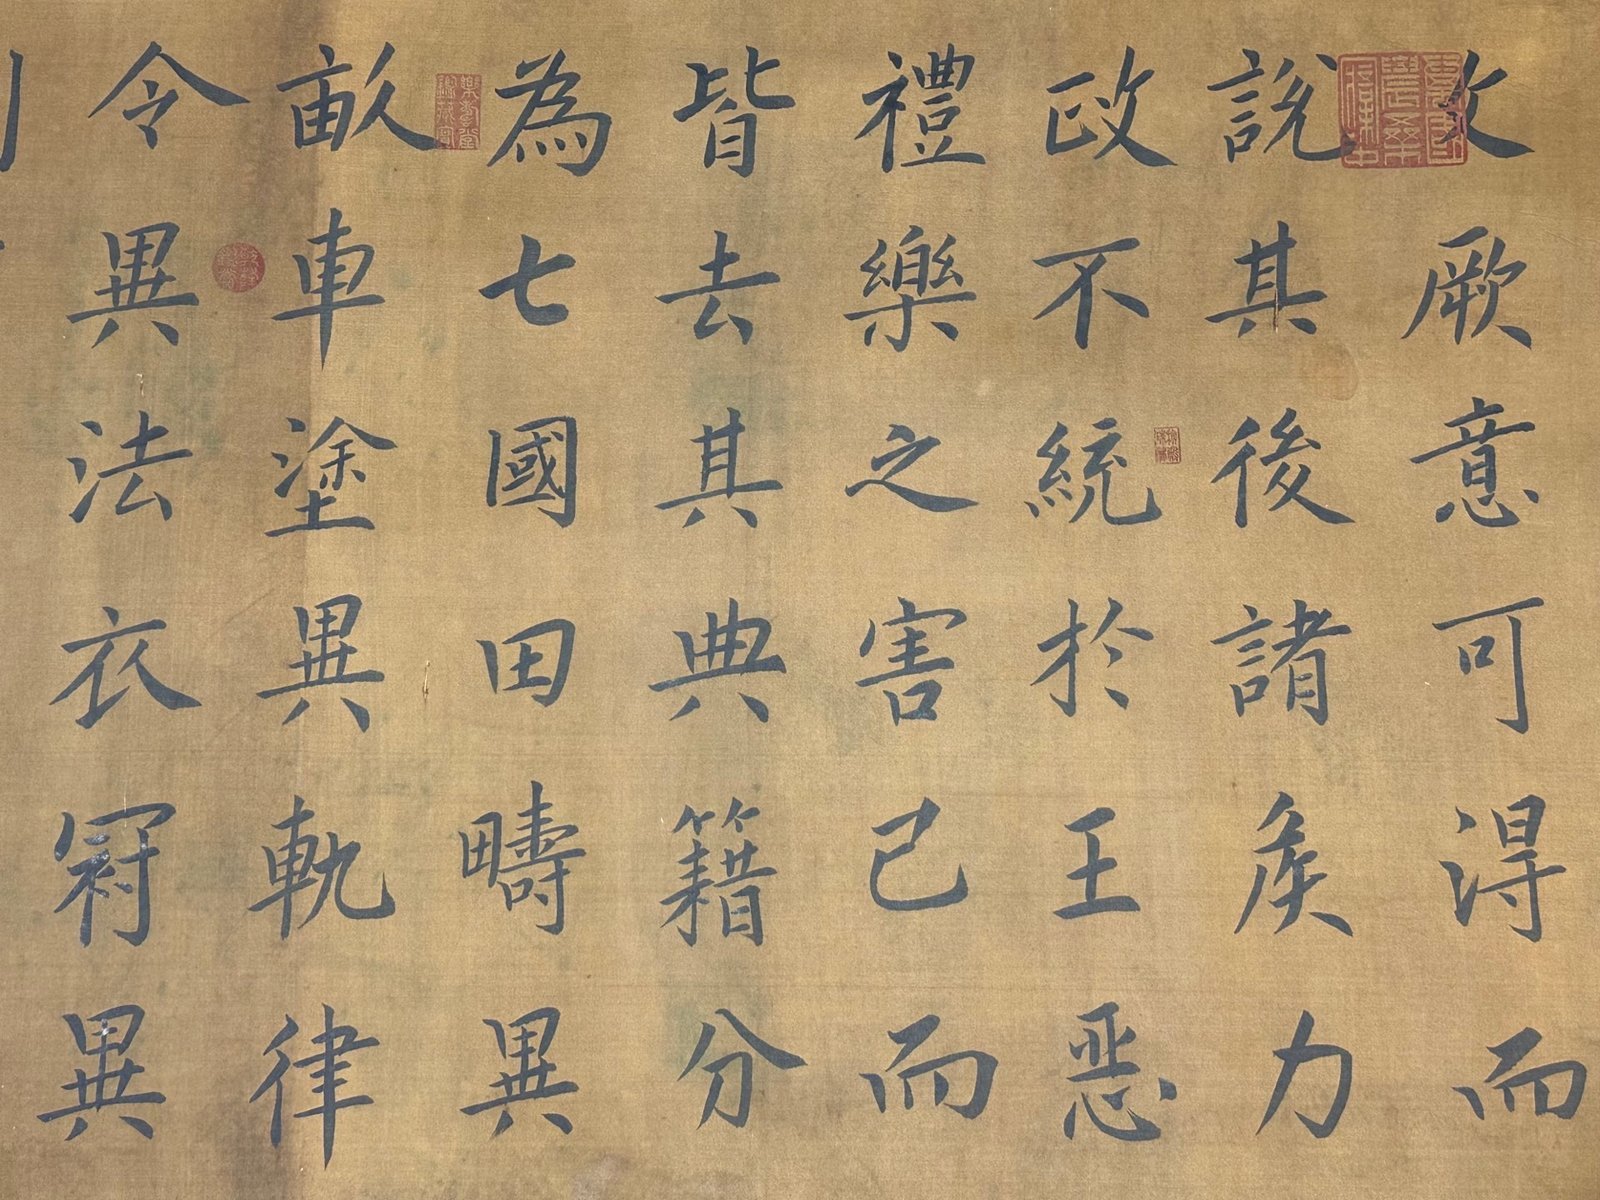 攵厥意可得而
說其後諸矦力
政不統於王惡
禮樂之害己而
皆去其典籍分
為七國田疇異
畝車塗異軌律
令異法衣冠異